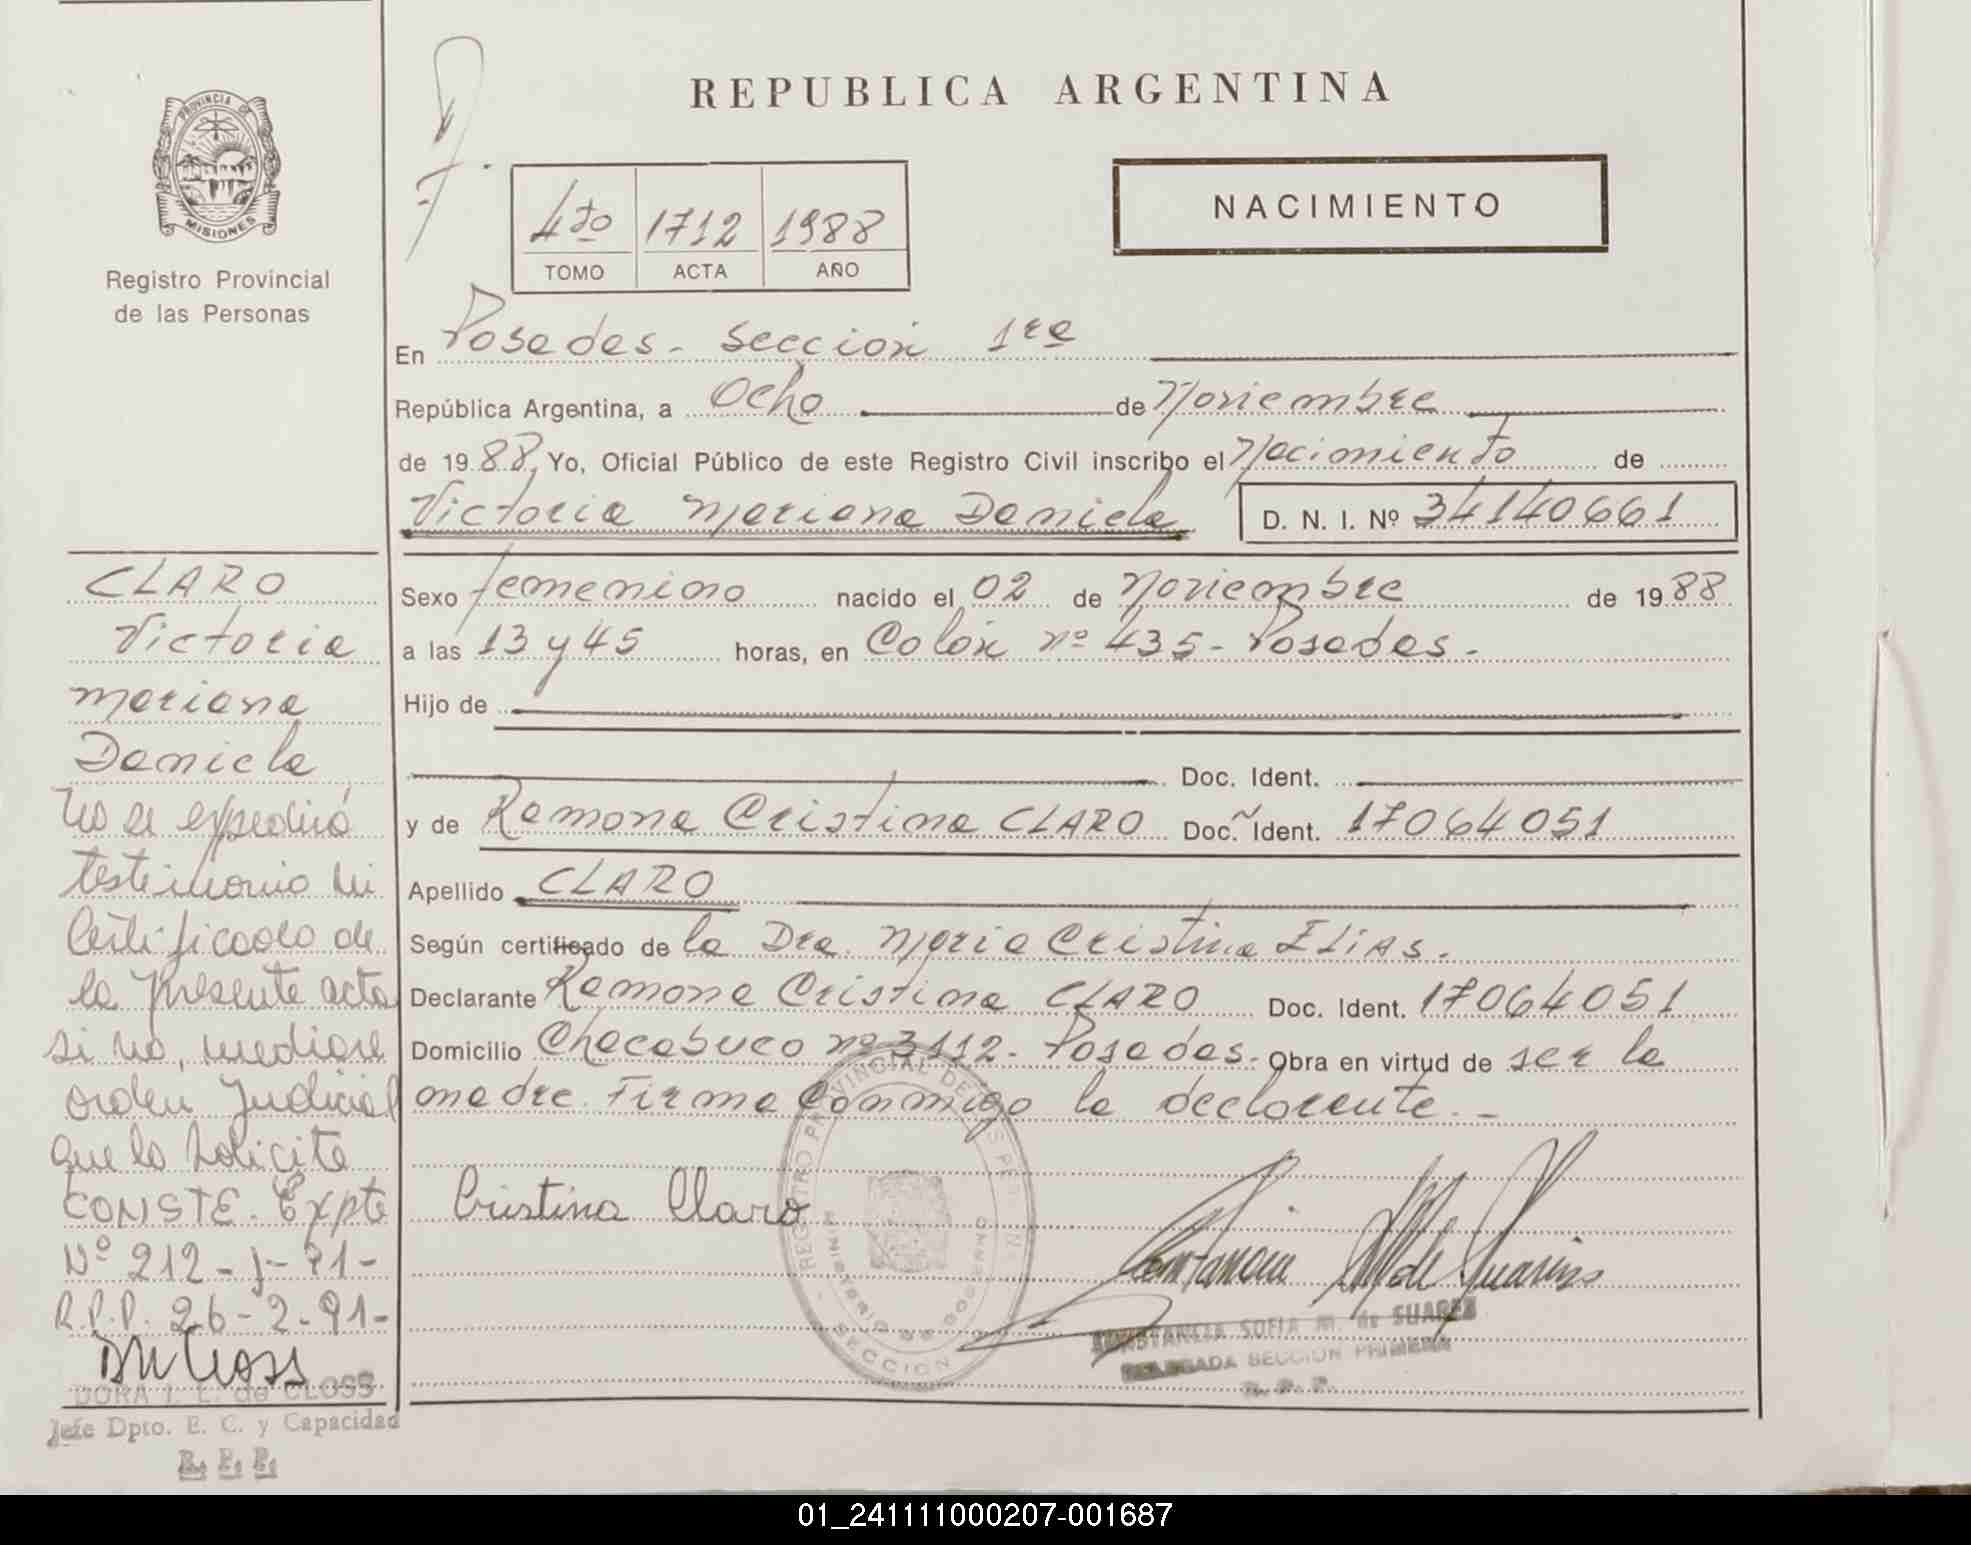 REPUBLICA ARGENTINA
PROVINCIA DE
MISIONES
Registro Provincial
de las Personas
4to 1712 1988
TOMO ACTA AÑO
NACIMIENTO
En Posadas - Sección 1ra
República Argentina, a Ocho de Noviembre
de 1988, Yo, Oficial Público de este Registro Civil inscribo el Nacimiento de
Victoria Mariana Daniela D. N. I. Nº 34140661
Sexo femenino nacido el 02 de Noviembre de 1988
a las 13 y 45 horas, en Colón nº 435 - Posadas -
Hijo de
Doc. Ident.
y de Ramona Cristina CLARO Doc. Ident. 17064051
Apellido CLARO
Según certificado de la Dra. Maria Cristina ELIAS.
Declarante Ramona Cristina CLARO Doc. Ident. 17064051
Domicilio Chacabuco nº 3112 - Posadas. Obra en virtud de ser la
madre. Firma conmigo la declarante. -
Cristina Claro
REGISTRO PROVINCIAL DE LAS PERSONAS
MINISTERIO DE GOBIERNO
SECCION
CONSTANCIA SOFIA M. de SUAREZ
DELEGADA SECCION PRIMERA
R. P. P.
CLARO
Victoria
Mariana
Daniela
No se expedirá
testimonio ni
Certificado de
la presente acta
si no, mediare
orden Judicial
que lo solicite
CONSTE. Expte
Nº 212 - J - 91 -
R.P.P. 26 - 2 - 91 -
DORA I. L. de CLOSS
Jefe Dpto. E. C. y Capacidad
R. P. P.
01_241111000207-001687